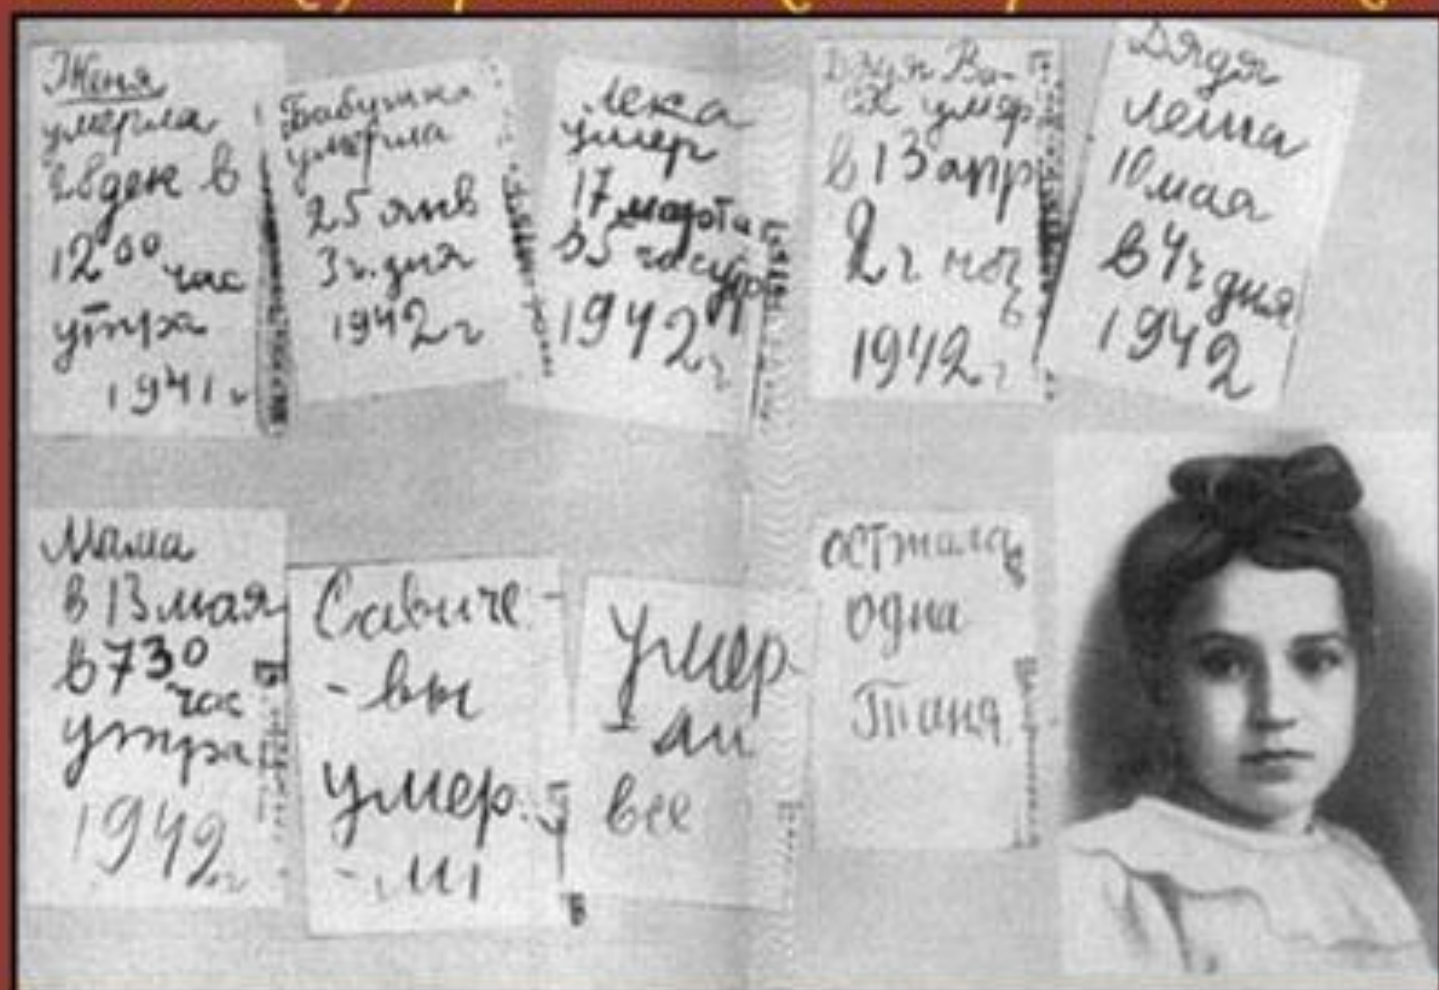 Женя
умерла
28 дек в
12 00 час
утра
1941 г
Бабушка
умерла
25 янв
3 ч. дня
1942 г
Лека
умер
17 марта
в 5 час утр
1942 г
Дядя Ва-
ся умер
в 13 апр
2 ч ноч
1942 г
Дядя
Леша
10 мая
в 4 ч дня
1942
Мама
в 13 мая
в 7 30
час
утра
1942 г
Савиче-
-вы
умер-
-ли
Умер-
-ли
все
Осталась
одна
Таня